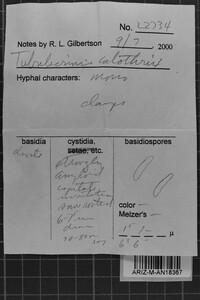 No. 22734
Notes by R. L. Gilbertson 9/7, 2000
Tubulicrinis calothrix
Hyphal characters: mono
clamps
basidia
cystidia,
setae, etc.
basidiospores
strongly
amyloid
capitate
6-7 µm
diam
color —
Melzer's —
µ
ARIZ-M-AN18367